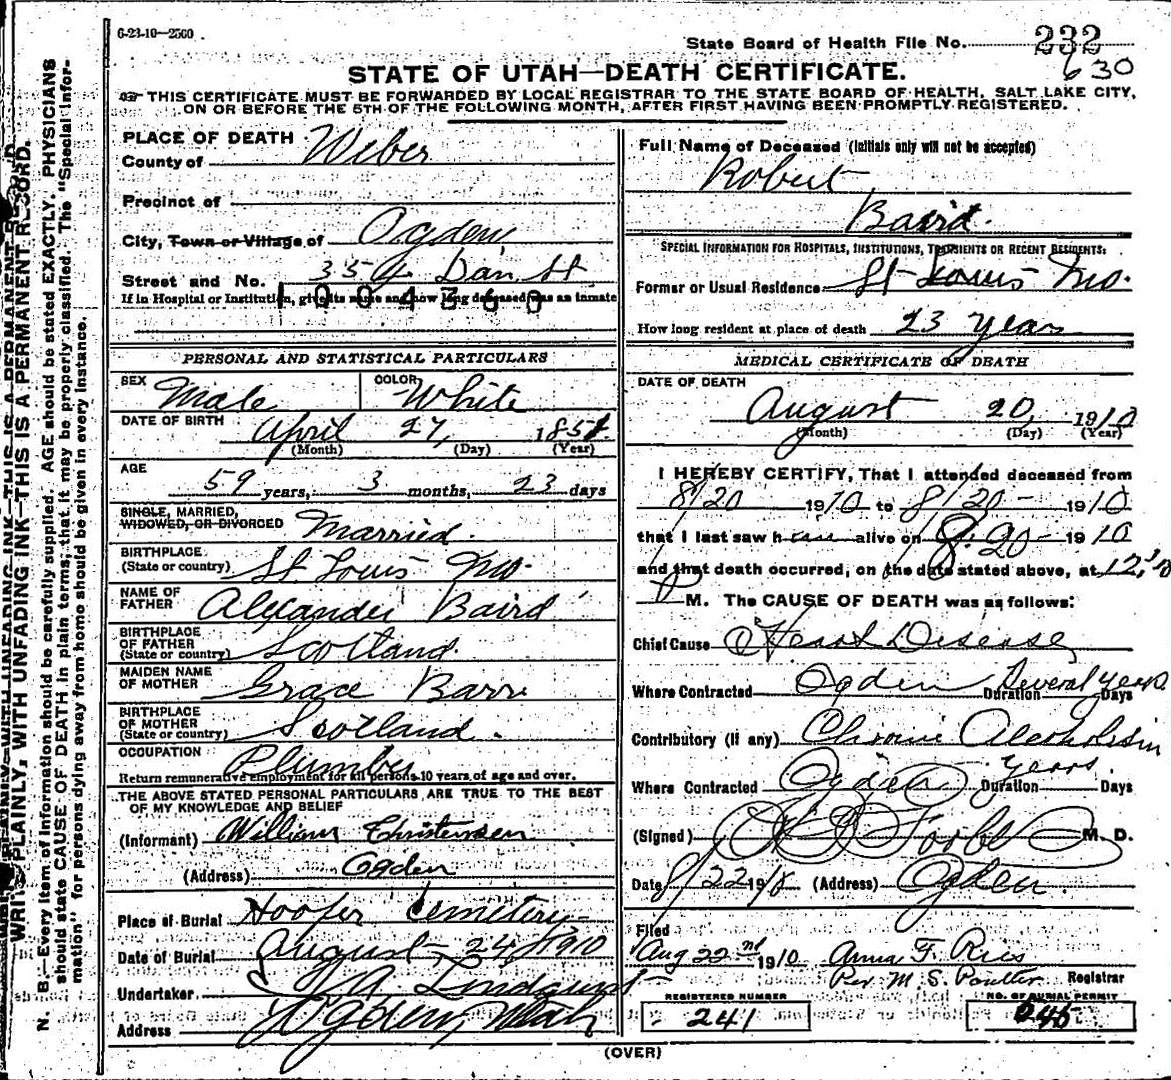 6-23-10—2500
State Board of Health File No. 232
630
STATE OF UTAH—DEATH CERTIFICATE.
THIS CERTIFICATE MUST BE FORWARDED BY LOCAL REGISTRAR TO THE STATE BOARD OF HEALTH, SALT LAKE CITY,
ON OR BEFORE THE 5TH OF THE FOLLOWING MONTH, AFTER FIRST HAVING BEEN PROMPTLY REGISTERED.
WRITE PLAINLY, WITH UNFADING INK—THIS IS A PERMANENT RECORD.
N. B.—Every item of information should be carefully supplied. AGE should be stated EXACTLY. PHYSICIANS
should state CAUSE OF DEATH in plain terms, that it may be properly classified. The "Special Infor-
mation" for persons dying away from home should be given in every instance.
PLACE OF DEATH
County of Weber
Precinct of
City, Town or Village of Ogden
Street and No. 354 Dan St
If in Hospital or Institution, give its name and how long deceased was an inmate
PERSONAL AND STATISTICAL PARTICULARS
SEX Male COLOR White
DATE OF BIRTH April 27, 1851
(Month) (Day) (Year)
AGE
59 years, 3 months, 23 days
SINGLE, MARRIED,
WIDOWED, OR DIVORCED Married.
BIRTHPLACE
(State or country) St. Louis Mo.
NAME OF
FATHER Alexander Baird
BIRTHPLACE
OF FATHER
(State or country) Scotland.
MAIDEN NAME
OF MOTHER Grace Barr
BIRTHPLACE
OF MOTHER
(State or country) Scotland.
OCCUPATION Plumber
Return remunerative employment for all persons 10 years of age and over.
THE ABOVE STATED PERSONAL PARTICULARS ARE TRUE TO THE BEST
OF MY KNOWLEDGE AND BELIEF
(Informant) William Christensen
(Address) Ogden
Place of Burial Hooper Cemetery
Date of Burial August 24, 1910
Undertaker Lindquist
Address Ogden, Utah
Full Name of Deceased (Initials only will not be accepted)
Robert
Baird.
SPECIAL INFORMATION FOR HOSPITALS, INSTITUTIONS, TRANSIENTS OR RECENT RESIDENTS:
Former or Usual Residence St Louis Mo.
How long resident at place of death 23 years
MEDICAL CERTIFICATE OF DEATH
DATE OF DEATH
August 20, 1910
(Month) (Day) (Year)
I HEREBY CERTIFY, That I attended deceased from
8/20 1910 to 8/20 - 1910
that I last saw h alive on 8.20 - 1910
and that death occurred, on the date stated above, at 12,10
P M. The CAUSE OF DEATH was as follows:
Chief Cause Heart Disease
Where Contracted Ogden Duration Several years Days
Contributory (if any) Chronic Alcoholism
Where Contracted Ogden Duration years. Days
(Signed) M. D.
Date 8/22 1910 (Address) Ogden.
Filed
Aug 22nd 1910 Anna F. Ries
Per M. S. Poulter Registrar
REGISTERED NUMBER
241
NO. OF BURIAL PERMIT
245
(OVER)